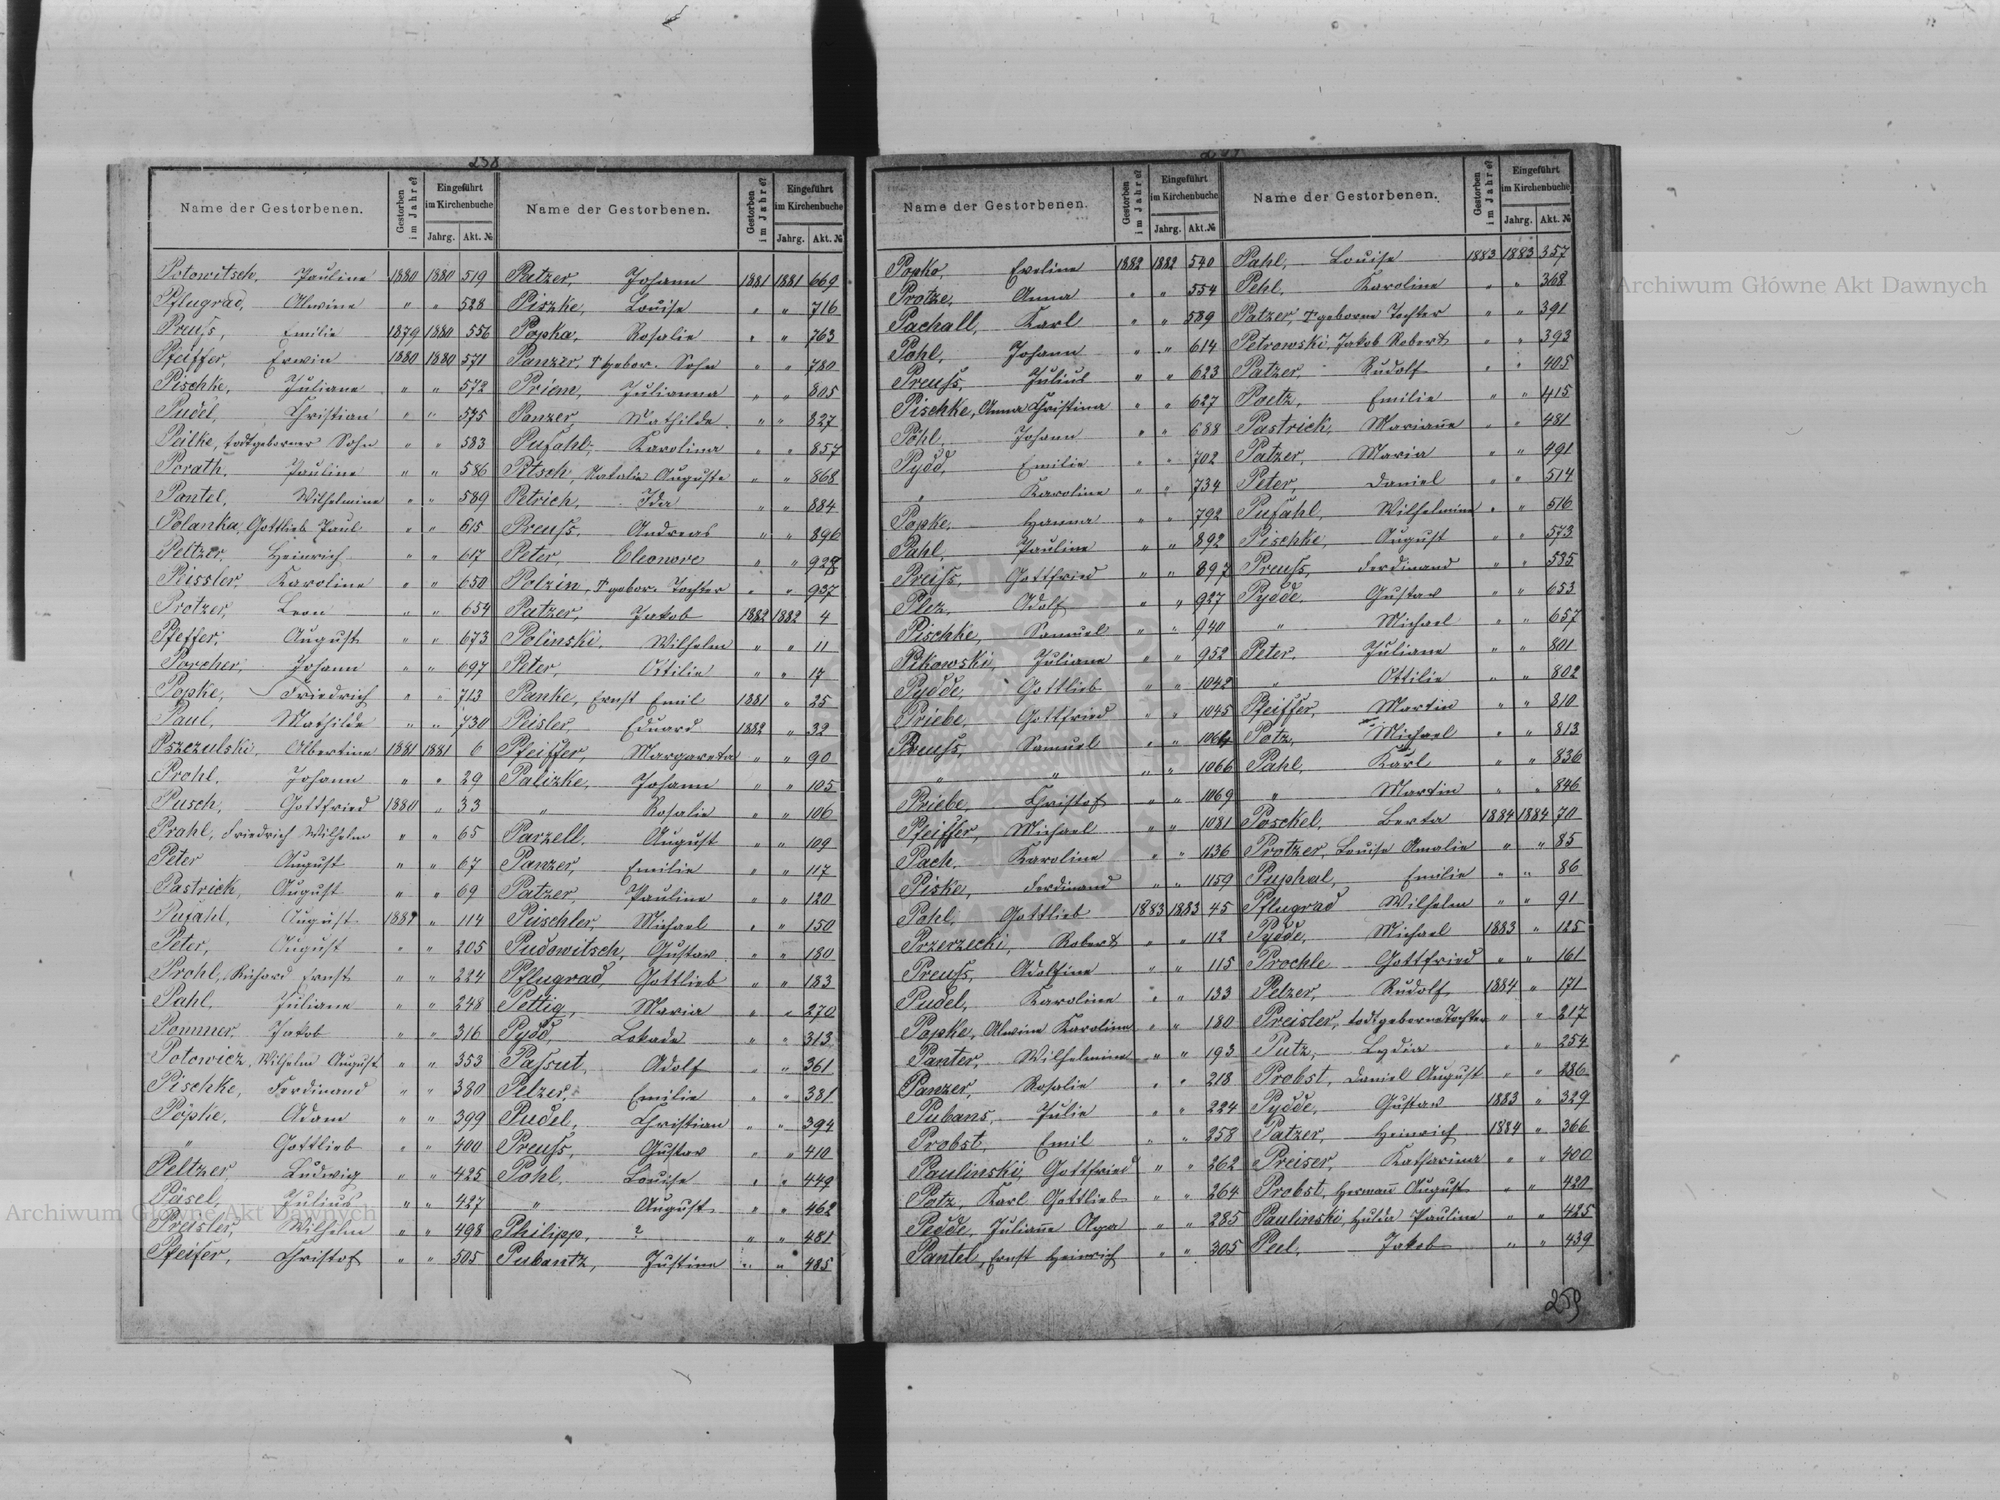 238
Name der Gestorbenen. Gestorben im Jahre? Eingeführt im Kirchenbuche Jahrg. Akt. №
Potowitsch, Pauline 1880 1880 519
Pflugrad, Alwine " " 528
Preuſs, Emilie 1879 1880 556
Pfeiffer, Erwin 1880 1880 571
Pischke, Juliane " " 572
Pudel, Christian " " 575
Peilke, todtgeborner Sohn " " 583
Porath, Pauline " " 586
Pantel, Wilhelmine " " 589
Polanka, Gottlieb Paul " " 615
Peltzer, Heinrich " " 617
Peissler, Karoline " " 650
Protzer, Leon " " 654
Pfeffer, August " " 673
Porcher, Johann " " 697
Popke, Friedrich " " 713
Paul, Mathilde " " 730
Pszczulski, Albertine 1881 1881 6
Prohl, Johann " " 29
Pusch, Gottfried 1880 " 33
Prahl, Friedrich Wilhelm " " 65
Peter August " " 67
Pastrick, August " " 69
Pufahl, August 1881 " 114
Peter, August " " 205
Prohl, Richard Ernst " " 224
Pahl, Juliane " " 248
Pommer, Jakob " " 316
Potowicz, Wilhelm August " " 353
Pischke, Ferdinand " " 380
Pöpke, Adam " " 399
" Gottlieb " " 400
Peltzer, Ludwig " " 425
Päsel, Julius " " 427
Preisler, Wilhelm " " 498
Pfeifer, Christof " " 505
Name der Gestorbenen. Gestorben im Jahre? Eingeführt im Kirchenbuche Jahrg. Akt. №
Patzer, Johann 1881 1881 669
Piszke, Louise " " 716
Popka, Rosalie " " 763
Panzer, Tgebor. Sohn " " 780
Priem, Julianna " " 805
Panzer, Mathilde " " 827
Pufahl, Karolina " " 857
Pitsch, Natalie Auguste " " 868
Petrich, Ida " " 884
Preuſs, Andreas " " 896
Peter, Eleonore " " 928
Polzin, Tgebor. Tochter " " 937
Patzer, Jakob 1882 1882 4
Polinski, Wilhelm " " 11
Peter, Otilie " " 17
Panke, Ernst Emil 1881 " 25
Peisler, Eduard 1882 " 32
Pfeiffer, Margareta " " 90
Palizke, Johann " " 105
" Rosalie " " 106
Parzell, August " " 109
Panzer, Emilie " " 117
Patzer, Pauline " " 120
Püschler, Michael " " 150
Pudowitsch, Gustav " " 180
Pflugrad, Gottlieb " " 183
Pettig, Maria " " 270
Pydd, Lokade " " 313
Paſsut, Adolf " " 361
Pelzer, Emilie " " 381
Pudel, Christian " " 394
Preuſs, Gustav " " 410
Pohl, Louise " " 449
" August " " 462
Philipp, ? " " 481
Pubantz, Justine " " 485
Name der Gestorbenen. Gestorben im Jahre? Eingeführt im Kirchenbuche Jahrg. Akt. №
Popko, Eveline 1882 1882 540
Protze, Anna " " 554
Pachall, Karl " " 589
Pohl, Johann " " 614
Preuſs, Julius " " 623
Pischke, Anna Christina " " 627
Pöhl, Johann " " 688
Pydd, Emilie " " 702
" Karoline " " 734
Popke, Hanna " " 792
Pahl, Pauline " " 892
Preiſs, Gottfried " " 897
Plez, Adolf " " 927
Pischke, Samuel " " 940
Pikowski, Juliane " " 952
Pydde, Gottlieb " " 1042
Priebe, Gottfried " " 1045
Preuſs, Samuel " " 1064
" " " " 1066
Priebe, Christof " " 1069
Pfeiffer, Michael " " 1081
Pach, Karoline " " 1136
Piske, Ferdinand " " 1159
Pohl, Gottlieb 1883 1883 45
Przerzecki, Robert " " 112
Preuſs, Adolfine " " 115
Pudel, Karoline " " 133
Popke, Alwine Karoline " " 180
Panter, Wilhelmine " " 193
Panzer, Rosalie " " 218
Pubans, Julie " " 224
Probst, Emil " " 258
Paulinski, Gottfried " " 262
Potz, Karl Gottlieb " " 264
Pedde, Julianne Olga " " 285
Pantel, Ernst Heinrich " " 305
Name der Gestorbenen. Gestorben im Jahre? Eingeführt im Kirchenbuche Jahrg. Akt. №
Pahl, Louise 1883 1883 357
Pehl, Karoline " " 368
Patzer, Tgeborne Tochter " " 391
Petrowski, Jakob Robert " " 393
Patzer, Rudolf " " 405
Paetz, Emilie " " 415
Pastrick, Marianne " " 481
Patzer, Maria " " 491
Peter, Daniel " " 514
Pufahl, Wilhelmine " " 516
Pischke, August " " 573
Preuſs, Ferdinand " " 585
Pydde, Gustav " " 653
" Michael " " 657
Peter, Juliane " " 801
" Ottilie " " 802
Pfeiffer, Martin " " 810
Potz, Michael " " 813
Pahl, Karl " " 836
" Martin " " 846
Poschel, Berta 1884 1884 70
Protzer, Louise Amalie " " 85
Puphal, Emilie " " 86
Pflugrad Wilhelm " " 91
Pydde, Michael 1883 " 125
Prochle Gottfried " " 161
Pelzer, Rudolf 1884 " 171
Preisler, todtgeborne Tochter " " 217
Putz, Lydia " " 254
Probst, Daniel August " " 286
Pydde, Gustav 1883 " 329
Patzer, Heinrich 1884 " 366
Preiser, Katharina " " 400
Probst, Hermann August " " 420
Paulinski, Hulda Pauline " " 425
Peel, Jakob " " 439
259
Archiwum Główne Akt Dawnych
Archiwum Główne Akt Dawnych